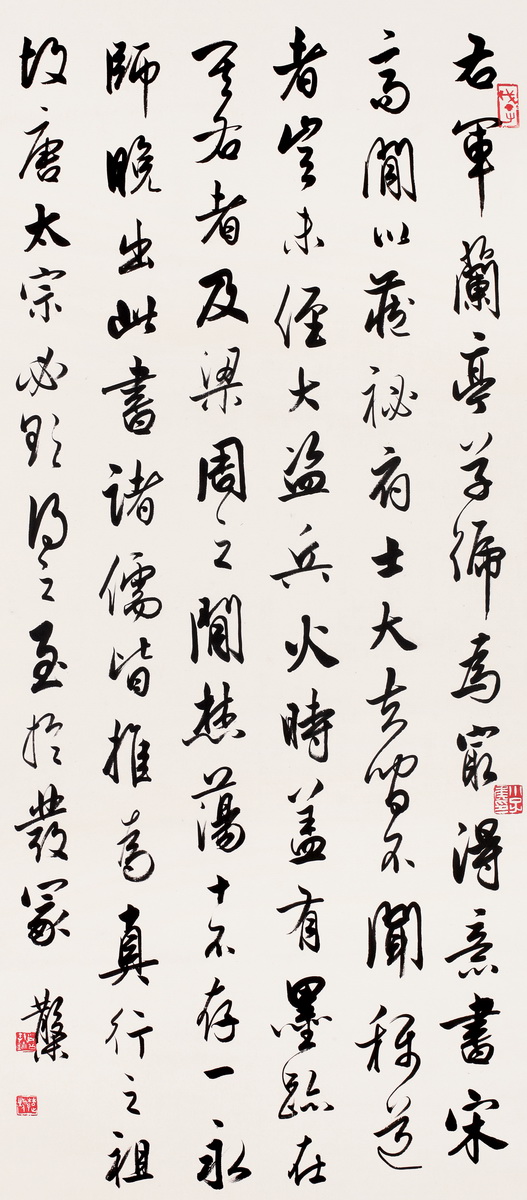 右軍蘭亭草號為最得意書宋
高閒以蔵祕府士大夫間不聞稱道
者豈未經大盜兵火時蓋有墨跡在
其右者及梁周之閒焚蕩十不存一永
師晚出此書諸儒皆推為真行之祖
故唐太宗必欲得之至於發冢
戊子